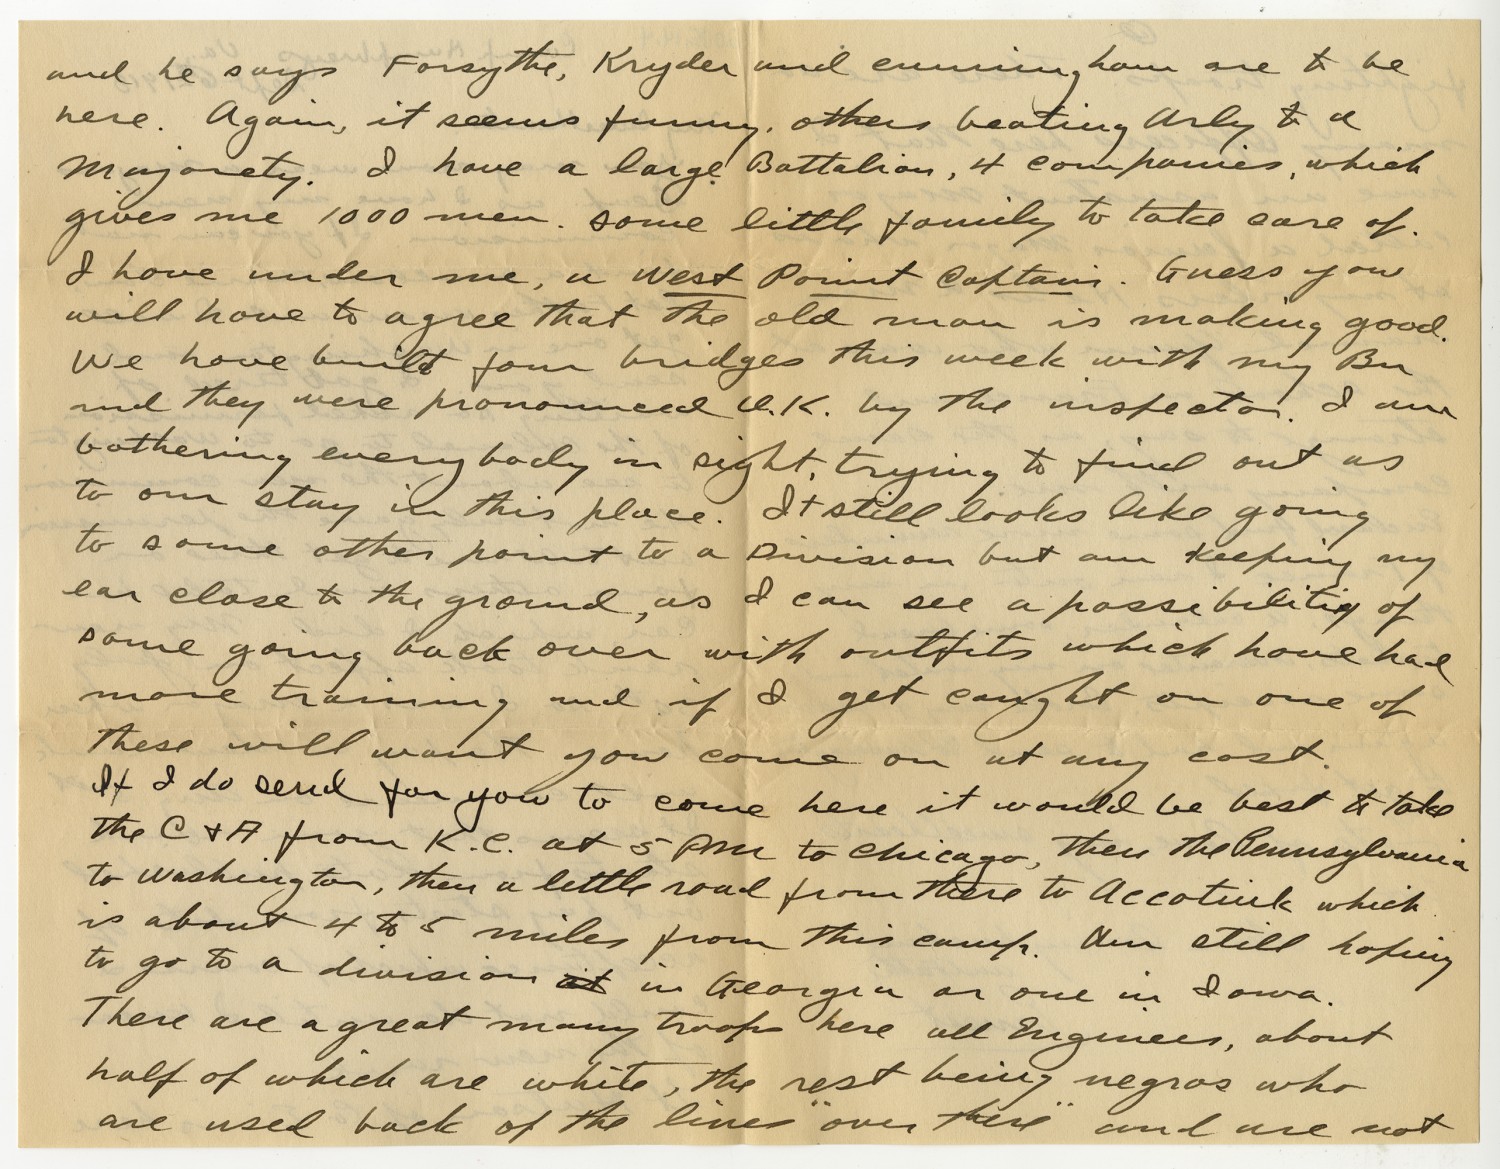 and he says Forsythe, Kryder and cunningham are to be
here. Again, it seems funny, others beating Arly to a
Majorety. I have a large Battalion, 4 companies, which
gives me 1000 men. some little family to take care of.
I have under me, a West Point Captain. Guess you
will have to agree that the old man is making good.
We have built four bridges this week with my Bn
and they were pronounced O.K. by the inspector. I am
bothering everybody in sight, trying to find out as
to our stay in this place. It still looks like going
to some other point to a Division but am keeping my
ear close to the ground, as I can see a possibility of
some going back over with outfits which have had
more training and if I get caught on one of
these will want you come on at any cost.
If I do send for you to come here it would be best to take
the C & A from K.C. at 5 PM to Chicago, then the Pennsylvania
to Washington, then a little road from there to Accotink which
is about 4 to 5 miles from this camp. Am still hoping
to go to a division in Georgia or one in Iowa.
There are a great many troops here all Engineers, about
half of which are white, the rest being negros who
are used back of the lines "over there" and are not